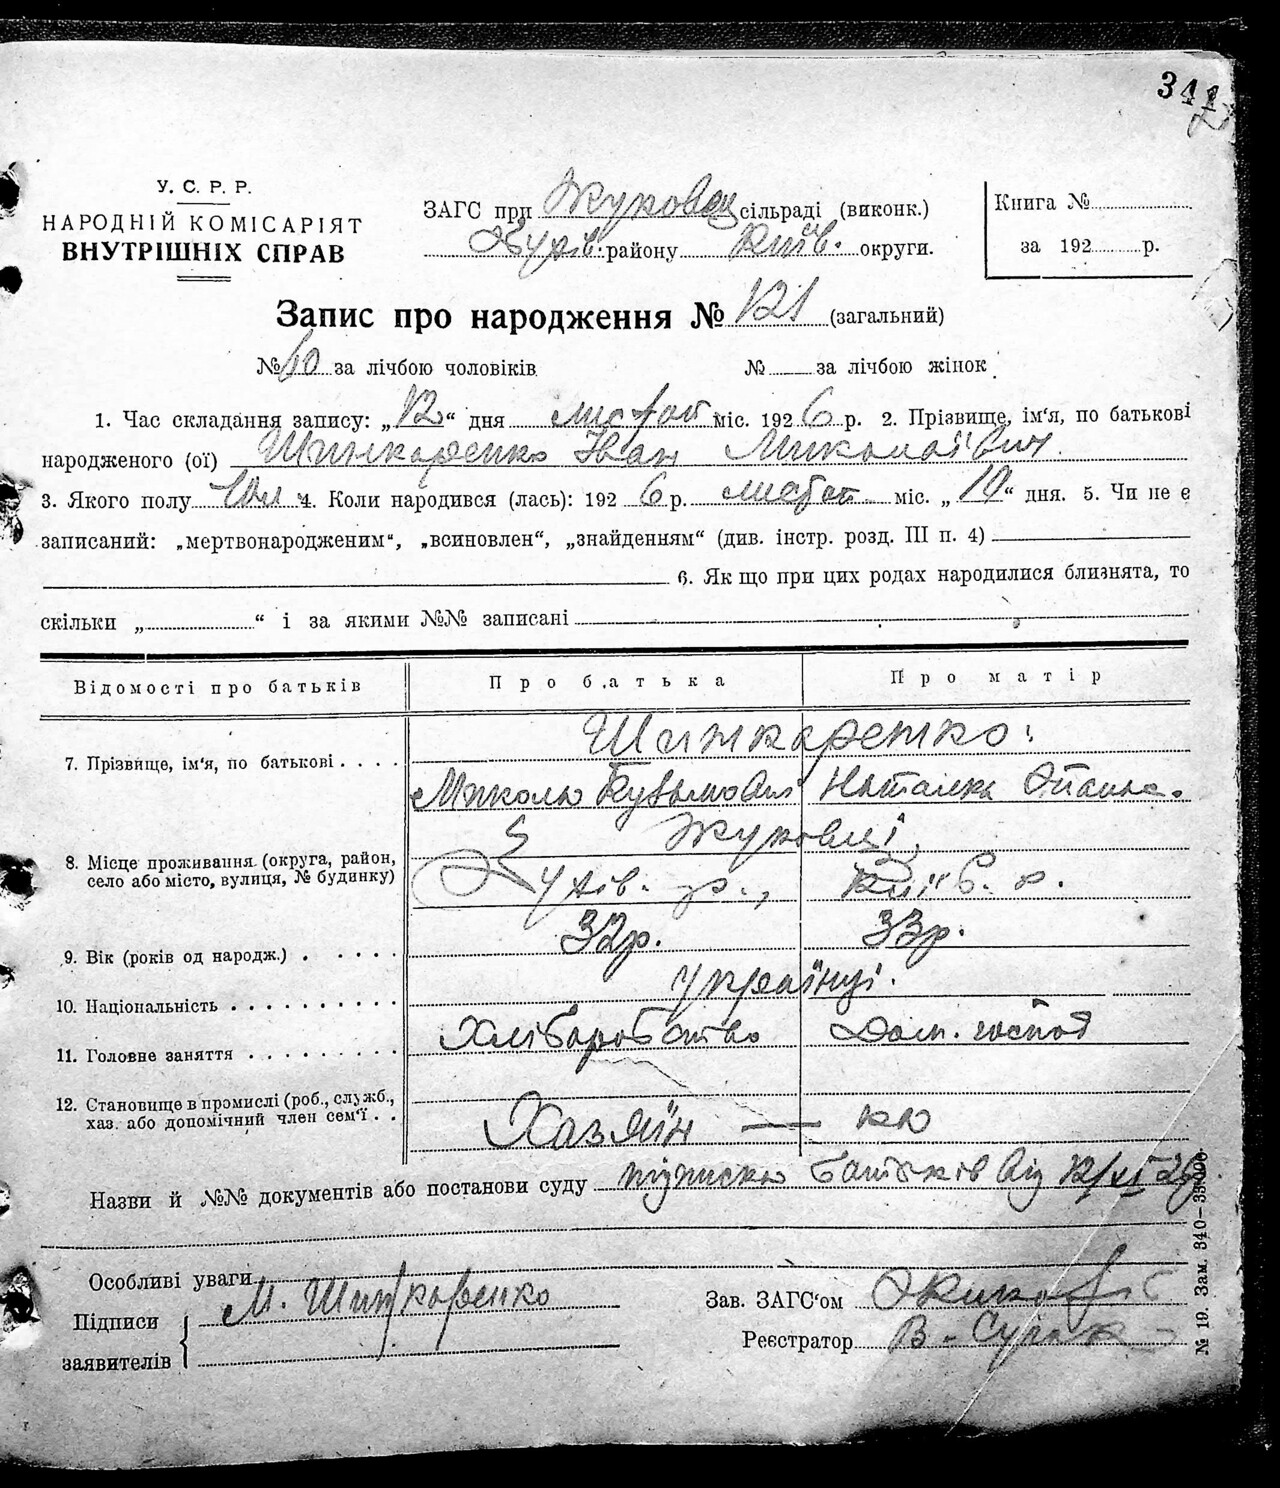 341
У. С. Р. Р.
НАРОДНІЙ КОМІСАРІЯТ
ВНУТРІШНІХ СПРАВ
ЗАГС при Жуковец сільраді (виконк.)
району Київ. округи.
Книга №
за 192 р.
Запис про народження № 121 (загальний)
№ 60 за лічбою чоловіків № за лічбою жінок
1. Час складання запису: „12“ дня листопад міс. 1926 р. 2. Прізвище, ім‘я, по батькові
народженого (ої) Шинкаренко Іван Миколаївич
3. Якого полу Чол 4. Коли народився (лась): 1926 р. листоп міс. „10“ дня. 5. Чи не є
записаний: „мертвонародженим“, „всиновлен“, „знайденням“ (див. інстр. розд. III п. 4)
6. Як що при цих родах народилися близнята, то
скільки „ “ і за якими №№ записані
Відомості про батьків Про батька Про матір
Шинкаренко
7. Прізвище, ім‘я, по батькові
Микола Кузьмович Наталка
Жуковці
8. Місце проживання (округа, район,
село або місто, вулиця, № будинку)
р., Київ. о.
9. Вік (років од народж.) 32р. 33р.
10. Національність українці.
11. Головне заняття Хліборобство Дом. господ
12. Становище в промислі (роб., служб.,
хаз. або допомічний член сем‘ї
Хазяїн — ка
Назви й №№ документів або постанови суду підписка батьків від 12/XI 26р.
Особливі уваги
Підписи
заявителів
М. Шинкаренко
Зав. ЗАГС‘ом
Реєстратор В.
№ 19. Зам. 340—33000